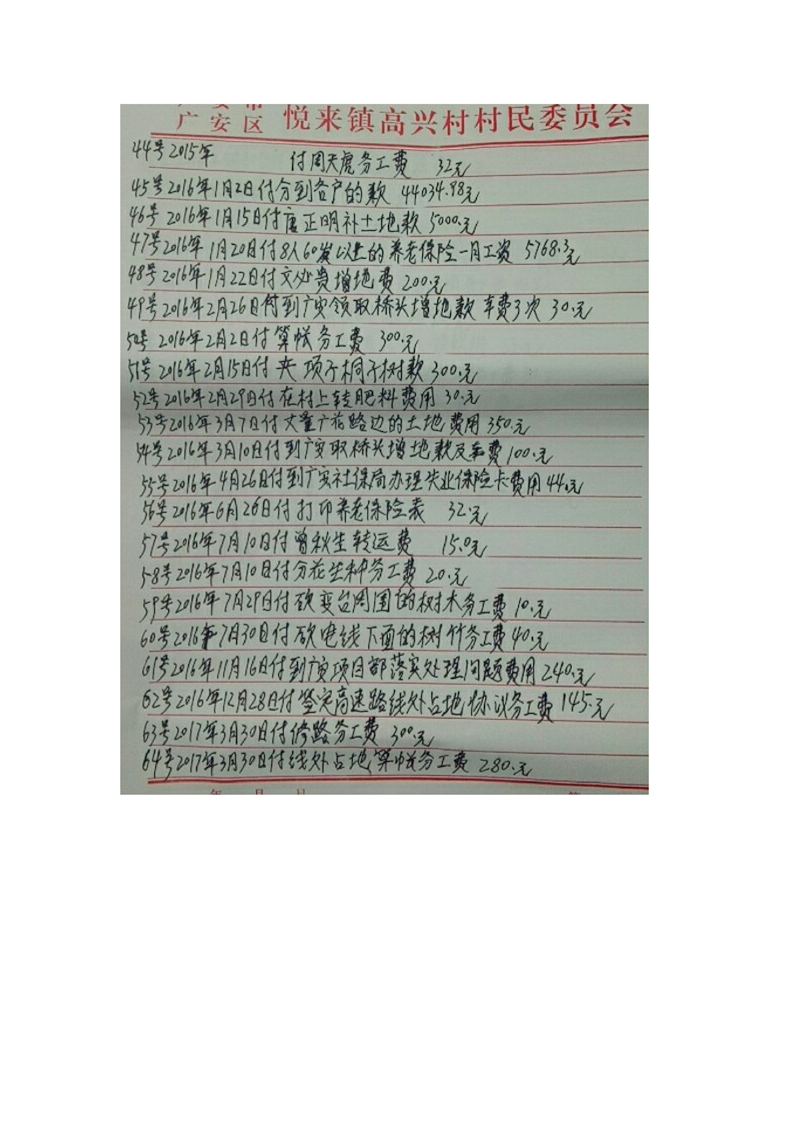 广安区 悦来镇高兴村村民委员会
44号2015年 付周天虎务工费 32元
45号2016年1月2日付分到各户的款 44034.98元
46号 2016年1月15日付唐正明补土地款 5000.元
47号2016年1月20日付8人60岁以上的养老保险一月工资 5768.3元
48号2016年1月22日付文处贵增地费 200.元
49号2016年2月26日付到广安领取桥头增地款车费3次 30.元
50号2016年2月2日付算帐务工费 300.元
51号2016年2月15日付 项子桐子树款 300.元
52号2016年2月29日付在村上转肥料费用 30.元
53号2016年3月7日付丈量广花路边的土地费用 350.元
54号2016年3月10日付到广安取桥头增地款及车费 100.元
55号2016年4月26日付到广安社保局办理失业保险卡费用 44.元
56号2016年6月26日付打印养老保险表 32.元
57号2016年7月10日付曾秋生转运费 15.0元
58号2016年7月10日付分花生种务工费 20.元
59号2016年7月29日付砍变台周围的树木务工费 10.元
60号2016年7月30日付砍电线下面的树竹务工费 40.元
61号2016年11月16日付到广安项目部落实处理问题费用 240.元
62号2016年12月28日付签定高速路线外占地协议务工费 145.元
63号2017年3月30日付修路务工费 300.元
64号2017年3月30日付线外占地算帐务工费 280.元
年 月 日